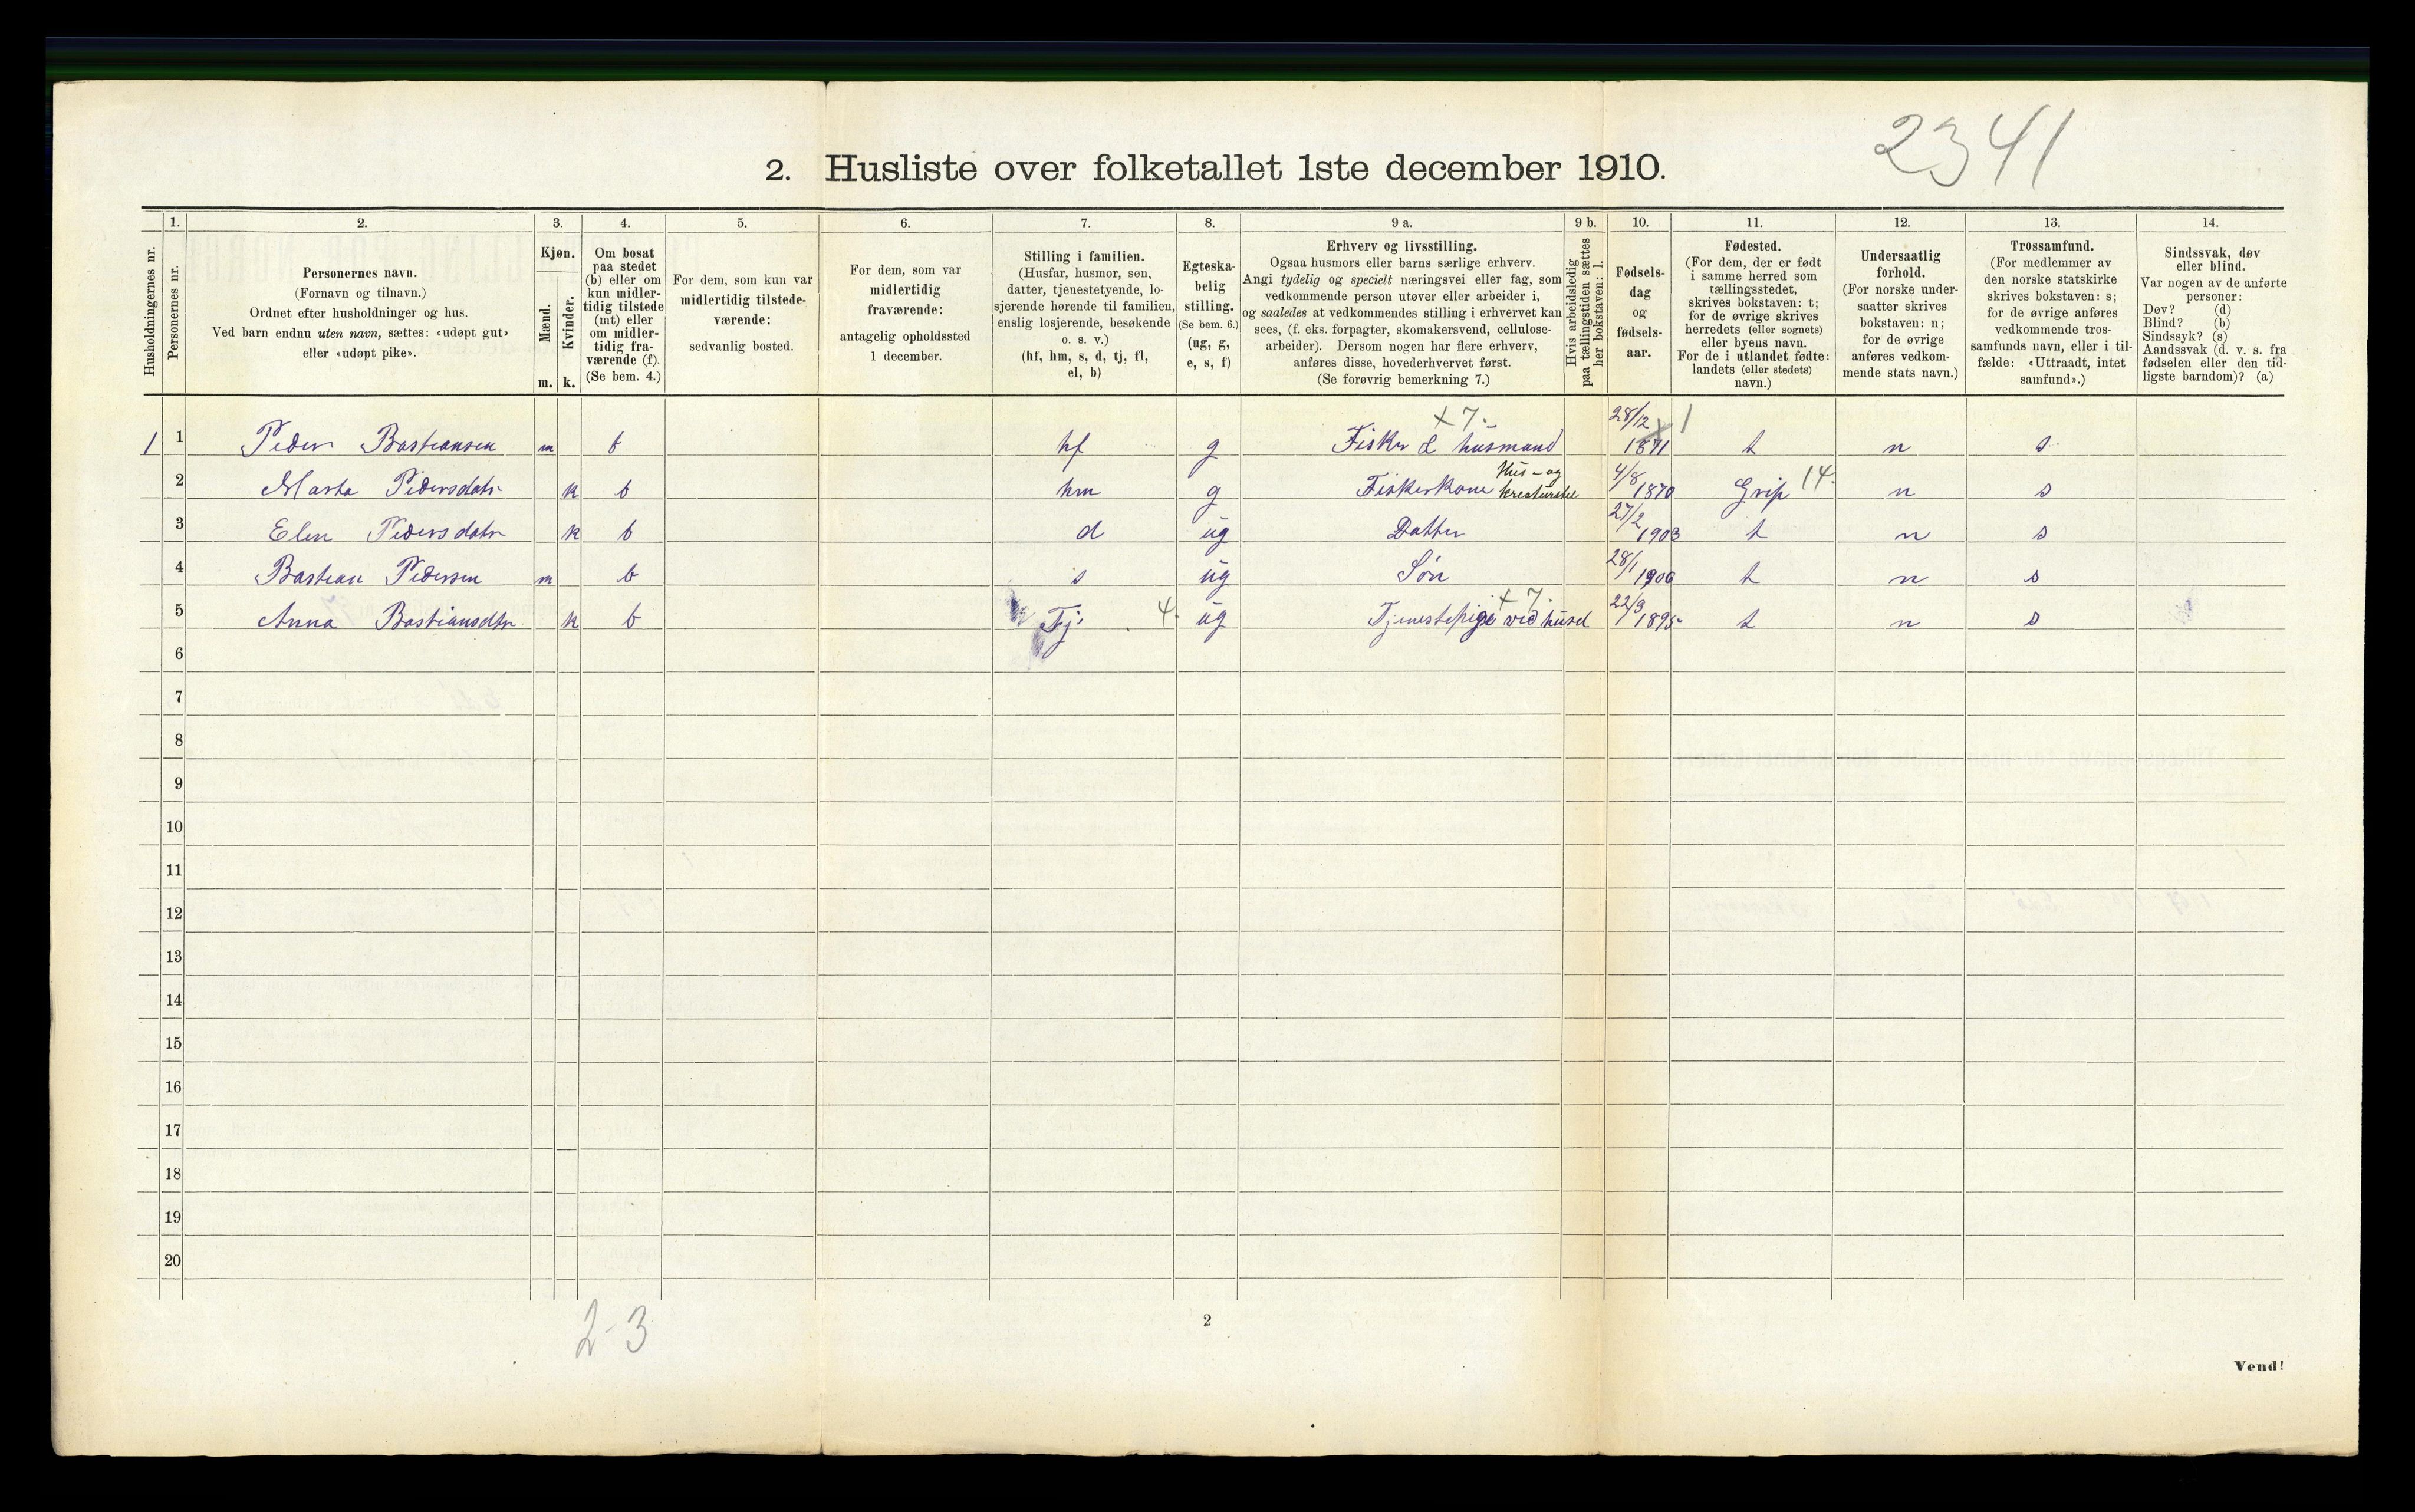 2341
2. Husliste over folketallet 1ste december 1910.
Husholdningernes nr.
1.
Personernes nr.
2.
Personernes navn.
(Fornavn og tilnavn.)
Ordnet efter husholdninger og hus.
Ved barn endnu uten navn, sættes: «udøpt gut»
eller «udøpt pike».
3.
Kjøn.
Mænd.
Kvinder.
m. k.
4.
Om bosat
paa stedet
(b) eller om
kun midler-
tidig tilstede
(mt) eller
om midler-
tidig fra-
værende (f).
(Se bem. 4.)
5.
For dem, som kun var
midlertidig tilstede-
værende:
sedvanlig bosted.
6.
For dem, som var
midlertidig
fraværende:
antagelig opholdssted
1 december.
7.
Stilling i familien.
(Husfar, husmor, søn,
datter, tjenestetyende, lo-
sjerende hørende til familien,
enslig losjerende, besøkende
o. s. v.)
(hf, hm, s, d, tj, fl,
el, b)
8.
Egteska-
belig
stilling.
(Se bem. 6.)
(ug, g,
e, s, f)
9 a.
Erhverv og livsstilling.
Ogsaa husmors eller barns særlige erhverv.
Angi tydelig og specielt næringsvei eller fag, som
vedkommende person utøver eller arbeider i,
og saaledes at vedkommendes stilling i erhvervet kan
sees, (f. eks. forpagter, skomakersvend, cellulose-
arbeider). Dersom nogen har flere erhverv,
anføres disse, hovederhvervet først.
(Se forøvrig bemerkning 7.)
9 b.
Hvis arbeidsledig
paa tællingstiden sættes
her bokstaven: l.
10.
Fødsels-
dag
og
fødsels-
aar.
11.
Fødested.
(For dem, der er født
i samme herred som
tællingsstedet,
skrives bokstaven: t;
for de øvrige skrives
herredets (eller sognets)
eller byens navn.
For de i utlandet fødte:
landets (eller stedets)
navn.)
12.
Undersaatlig
forhold.
(For norske under-
saatter skrives
bokstaven: n;
for de øvrige
anføres vedkom-
mende stats navn.)
13.
Trossamfund.
(For medlemmer av
den norske statskirke
skrives bokstaven: s;
for de øvrige anføres
vedkommende tros-
samfunds navn, eller i til-
fælde: «Uttraadt, intet
samfund».)
14.
Sindssvak, døv
eller blind.
Var nogen av de anførte
personer:
Døv? (d)
Blind? (b)
Sindssyk? (s)
Aandssvak (d. v. s. fra
fødselen eller den tid-
ligste barndom)? (a)
1 1 Peder Bastiansen m b hf g Fisker & husmand +7. 28/12 1871 1 t n s
2 Marta Pedersdatr k b hm g Fiskerkone Hus- og kreaturstel 4/8 1870 Grip 14. n s
3 Elen Pedersdatr k b d ug Datter 27/2 1903 t n s
4 Bastian Pedersen m b s ug Søn 28/1 1906 t n s
5 Anna Bastiansdtr k b Tj. 4. ug Tjenestepige ved huset +7. 22/3 1895 t n s
6
7
8
9
10
11
12
13
14
15
16
17
18
19
20
2-3
2
Vend!